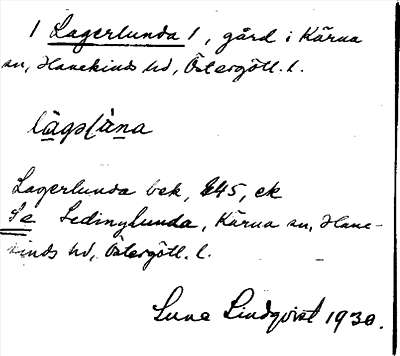 1 Lagerlunda 1, gård i Kärna
sn, Hanekinds hd, Östergötl. l.
Lagerlunda bek, E45, ek
Se Ledinglunda, Kärna sn, Hane-
kinds hd, Östergötl. l.
Sune Lindqvist 1930.